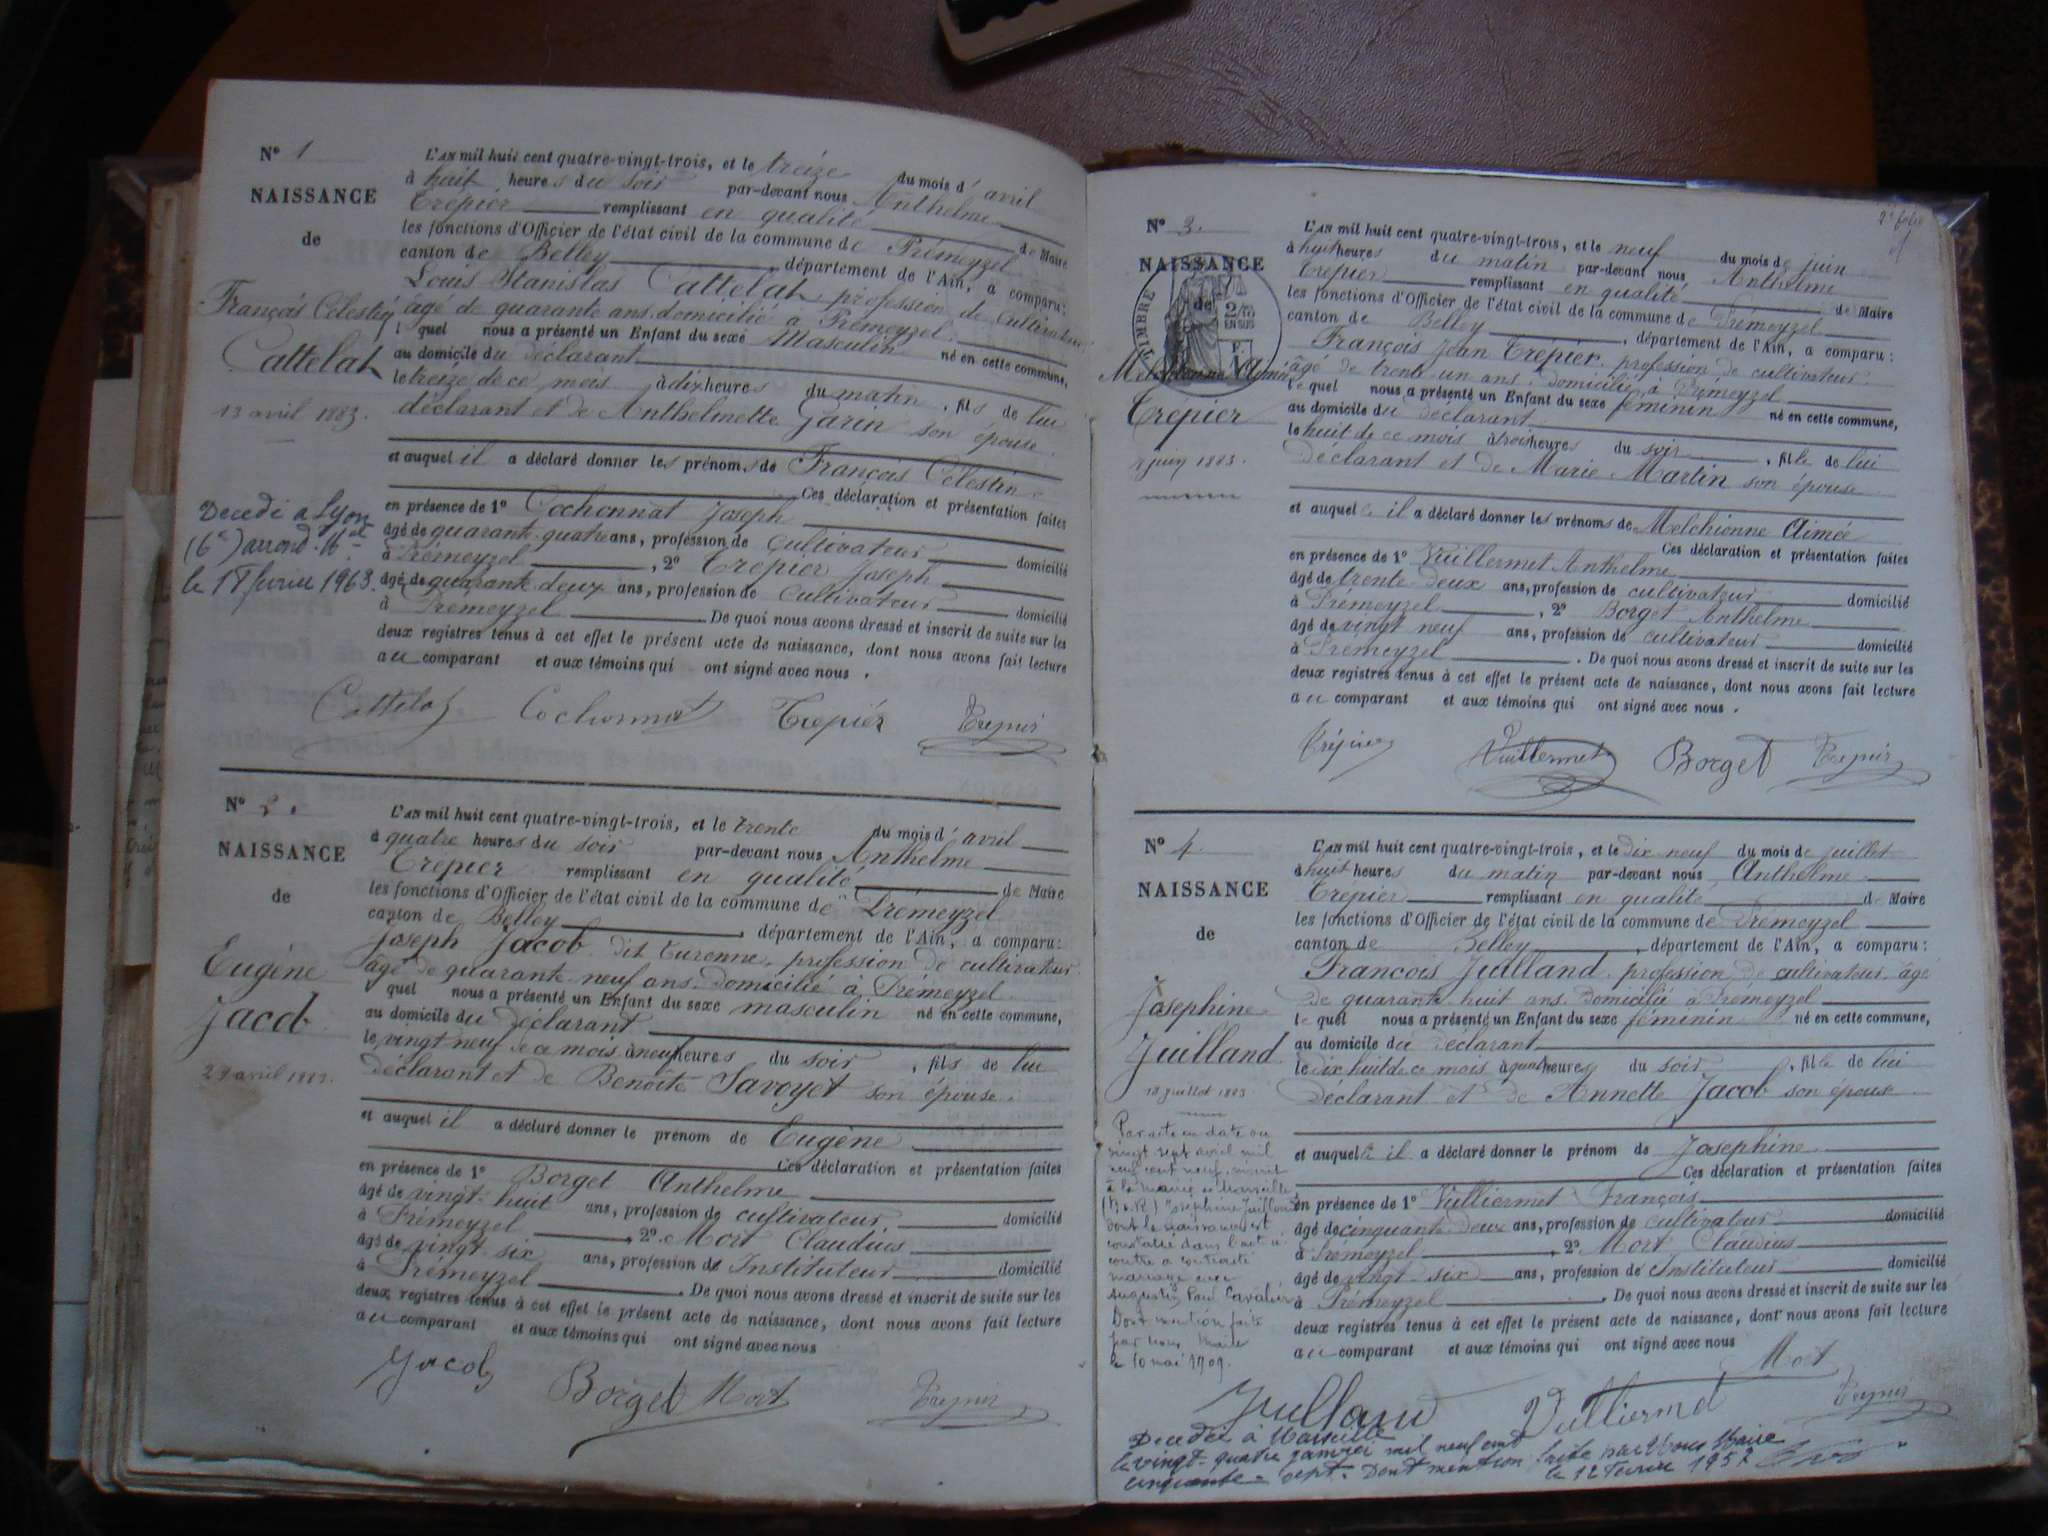 N° 1
NAISSANCE
de
François Célestin
Cattelat
13 avril 1883.
Décédé à Lyon
(6e) arrond. t
le 18 février 1963.
L'AN mil huit cent quatre-vingt-trois, et le treize du mois d'avril
à huit heures du soir par-devant nous Anthelme
Trépier remplissant en qualité de Maire
les fonctions d'Officier de l'état civil de la commune de Prémeyzel
canton de Belley, département de l'Ain, a comparu:
Louis Stanislas Cattelat, profession de cultivateur
âgé de quarante ans, domicilié à Prémeyzel
lequel nous a présenté un Enfant du sexe Masculin né en cette commune,
au domicile du déclarant
le treize de ce mois à dix heures du matin, fils de lui
déclarant et de Anthelmette Garin son épouse
et auquel il a déclaré donner les prénoms de François Célestin
Ces déclaration et présentation faites
en présence de 1° Cochonnat Joseph
âgé de quarante-quatre ans, profession de cultivateur domicilié
à Prémeyzel, 2° Trépier Joseph
âgé de quarante deux ans, profession de cultivateur domicilié
à Prémeyzel. De quoi nous avons dressé et inscrit de suite sur les
deux registres tenus à cet effet le présent acte de naissance, dont nous avons fait lecture
au comparant et aux témoins qui ont signé avec nous.
Cattelat Cochonnat Trepier Trepier
N° 2.
NAISSANCE
de
Eugène
Jacob
29 avril 1883.
L'AN mil huit cent quatre-vingt-trois, et le trente du mois d'avril
à quatre heures du soir par-devant nous Anthelme
Trepier remplissant en qualité de Maire
les fonctions d'Officier de l'état civil de la commune de Prémeyzel
canton de Belley, département de l'Ain, a comparu:
Joseph Jacob dit Turenne, profession de cultivateur
âgé de quarante-neuf ans, domicilié à Prémeyzel
lequel nous a présenté un Enfant du sexe masculin né en cette commune,
au domicile du déclarant
le vingt neuf de ce mois à neuf heures du soir, fils de lui
déclarant et de Benoîte Savoyet son épouse.
et auquel il a déclaré donner le prénom de Eugène
Ces déclaration et présentation faites
en présence de 1° Borget Anthelme
âgé de vingt-huit ans, profession de cultivateur, domicilié
à Prémeyzel, 2° Mort Claudius
âgé de vingt six ans, profession de Instituteur domicilié
à Prémeyzel. De quoi nous avons dressé et inscrit de suite sur les
deux registres tenus à cet effet le présent acte de naissance, dont nous avons fait lecture
au comparant et aux témoins qui ont signé avec nous
Jacob Borget Mort Trepier
2e folio
N° 3.
NAISSANCE
de
TIMBRE
2/10
EN SUS
Melchionne Aimée
Trépier
8 juin 1883.
L'AN mil huit cent quatre-vingt-trois, et le neuf du mois de juin
à huit heures du matin par-devant nous Anthelme
Trepier remplissant en qualité de Maire
les fonctions d'Officier de l'état civil de la commune de Prémeyzel
canton de Belley, département de l'Ain, a comparu:
François Jean Trépier, profession de cultivateur
âgé de trente un ans, domicilié à Prémeyzel
lequel nous a présenté un Enfant du sexe féminin né en cette commune,
au domicile du déclarant
le huit de ce mois à trois heures du soir, fille de lui
déclarant et de Marie Martin son épouse
et auquel il a déclaré donner les prénoms de Melchionne Aimée
Ces déclaration et présentation faites
en présence de 1° Vuillermet Anthelme
âgé de trente deux ans, profession de cultivateur domicilié
à Prémeyzel, 2° Borget Anthelme
âgé de vingt neuf ans, profession de cultivateur domicilié
à Prémeyzel. De quoi nous avons dressé et inscrit de suite sur les
deux registres tenus à cet effet le présent acte de naissance, dont nous avons fait lecture
au comparant et aux témoins qui ont signé avec nous.
Trépier Vuillermet Borget Trepier
N° 4.
NAISSANCE
de
Josephine
Juilland
18 juillet 1883
Par acte en date du
vingt sept avril mil
neuf cent neuf, inscrit
à la mairie de Marseille
(B.d.R.) Josephine Juilland
dont la naissance est
constatée dans l'acte ci
contre a contracté
mariage avec
Augustin Paul Cavalier
Dont mention faite
par nous Maire
le 10 mai 1909.
L'AN mil huit cent quatre-vingt-trois, et le dix neuf du mois de juillet
à huit heures du matin par-devant nous Anthelme
Trepier remplissant en qualité de Maire
les fonctions d'Officier de l'état civil de la commune de Prémeyzel
canton de Belley, département de l'Ain, a comparu:
François Juilland, profession de cultivateur âgé
de quarante huit ans domicilié à Prémeyzel
lequel nous a présenté un Enfant du sexe féminin né en cette commune,
au domicile du déclarant
le dix huit de ce mois à quatre heures du soir, fille de lui
déclarant et de Annette Jacob son épouse
et auquel il a déclaré donner le prénom de Josephine
Ces déclaration et présentation faites
en présence de 1° Vulliermet François
âgé de cinquante deux ans, profession de cultivateur domicilié
à Prémeyzel, 2° Mort Claudius
âgé de vingt six ans, profession de Instituteur domicilié
à Prémeyzel. De quoi nous avons dressé et inscrit de suite sur les
deux registres tenus à cet effet le présent acte de naissance, dont nous avons fait lecture
au comparant et aux témoins qui ont signé avec nous
Mort
Juilland Vulliermet Trepier
Décédée à Marseille
le vingt-quatre janvier mil neuf cent
cinquante-sept. Dont mention faite par Nous Maire
le 12 Février 1957